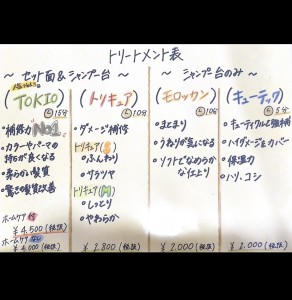 トリートメント表
～ セット面&シャンプー台 ～
～ シャンプー台のみ ～
(TOKIO)
15分
・補修力No1
・カラーやパーマの
持ちが良くなる
・柔らかい髪質
・驚きの髪質改善
ホームケア 付
¥4,500(税抜)
ホームケア なし
¥4,000(税抜)
(トリキュア)
10分
・ダメージ補修
トリートメント(S)
・ふんわり
・サラツヤ
トリキュア(M)
・しっとり
・やわらか
¥2,800(税抜)
(モロッカン)
10分
・まとまり
・うねりが気になる
・ソフトでなめらか
な仕上り
¥2,000(税抜)
(キューティック)
5分
・キューティクルを強補
・ハイダメージもカバー
・保温力
・ハリ、コシ
¥2,000(税抜)